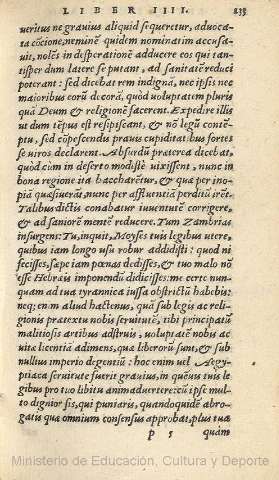 LIBER IIII. 233
ueritus ne grauius aliquid sequeretur, aduoca-
ta cōcione, neminē quidem nominatim accusa-
uit, nolēs in desperationē adducere eos qui tan-
tisper dum latere se putant, ad sanitatē reduci
poterant: sed dicebat rem indignā, nec ipsis nec
maioribus eorū decorā, quòd uoluptatem pluris
quā Deum & religionē facerent. Expedire illis
ut dum tēpus est resipiscant, & nō legū contē-
ptu, sed cōpescendis prauis cupiditatibus fortes
se uiros declarent. Absurdū praeterea dicebat,
quòd cùm in deserto modestè uixissent, nunc in
bona regione ita baccharētur, & quae per ino-
piā quaesierāt, nunc per affluentiā perditū irēt.
Talibus dictis conabatur iuuentutē corrigere,
& ad saniorē mentē reducere. Tum Zambrias
insurgens: Tu, inquit, Moyses tuis legibus utere,
quibus iam longo usu robur addidisti: quod ni
fecisses, saepe iam poenas dedisses, & tuo malo nō
esse Hebraeis imponendū didicisses: me certè nun-
quam ad tua tyrannica iussa obstrictū habebis:
neq; enim aliud hactenus, quā sub legis ac reli-
gionis praetextu nobis seruitutē, tibi principatū
malitiosis artibus adstruis, uoluptatē nobis ac
uitae licentiā adimens, quae liberorū sunt, & sub
nullius imperio degentiū: hoc enim uel Aegy-
ptiaca seruitute fuerit grauius, in quēuis tuis le-
gibus pro tuo libitu animaduertere: cū ipse mul-
to dignior sis, qui puniaris, quandoquidē abro-
gatis quae omnium consensus approbat, plus tua
P 5 quàm
Ministerio de Educación, Cultura y Deporte